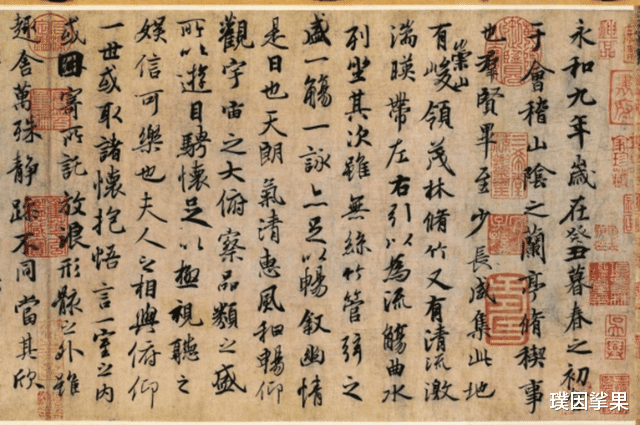 永和九年歲在癸丑暮春之初
于會稽山陰之蘭亭脩禊事
也羣賢畢至少長咸集此地
有崇山峻領茂林脩竹又有清流激
湍暎帶左右引以為流觴曲水
列坐其次雖無絲竹管弦之
盛一觴一詠亦足以暢敘幽情
是日也天朗氣清惠風和暢仰
觀宇宙之大俯察品類之盛
所以遊目騁懷足以極視聽之
娛信可樂也夫人之相與俯仰
一世或取諸懷抱悟言一室之內
或因寄所託放浪形骸之外雖
趣舍萬殊靜躁不同當其欣
璞因挲果